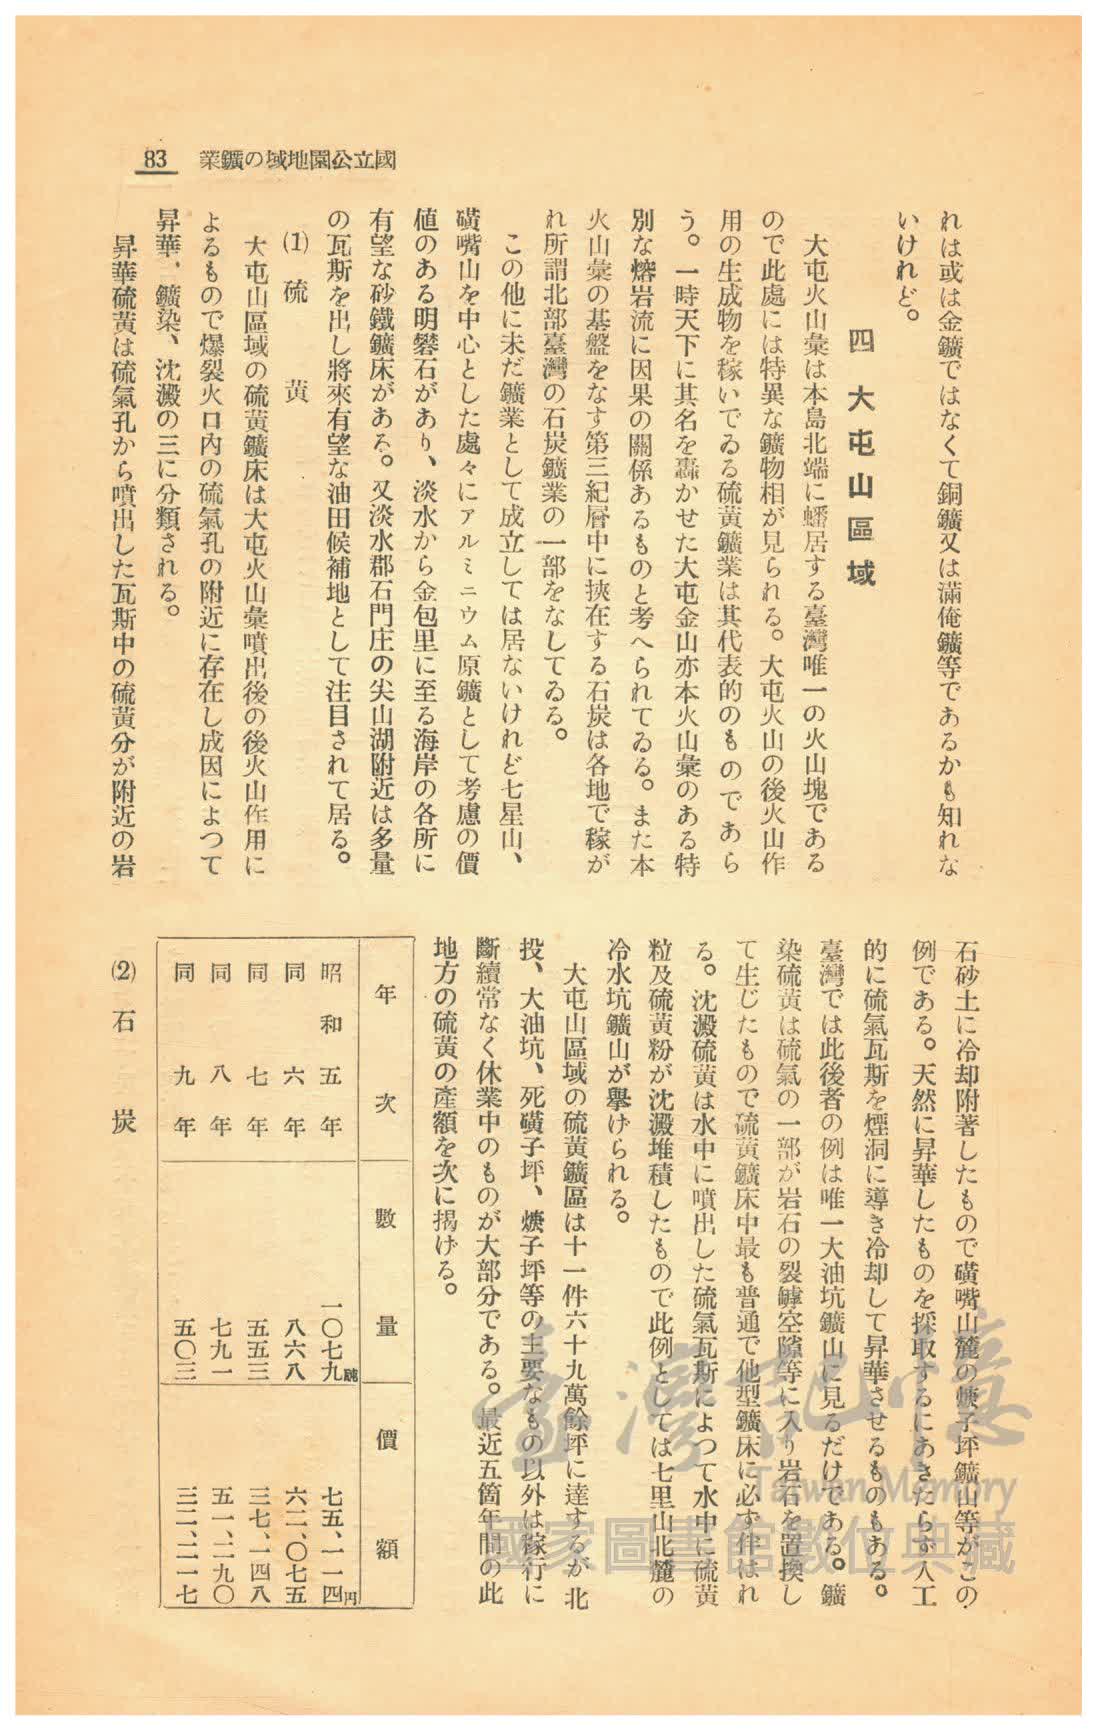 國立公園地域の鑛業
83
れは或は金鑛ではなくて銅鑛又は滿俺鑛等であるかも知れな
いけれど。
四 大屯山區域
大屯火山彙は本島北端に蟠居する臺灣唯一の火山塊である
ので此處には特異な鑛物相が見られる。大屯火山の後火山作
用の生成物を稼いでゐる硫黄鑛業は其代表的のものであら
う。一時天下に其名を轟かせた大屯金山亦本火山彙のある特
別な熔岩流に因果の關係あるものと考へられてゐる。また本
火山彙の基盤をなす第三紀層中に挾在する石炭は各地で稼が
れ所謂北部臺灣の石炭鑛業の一部をなしてゐる。
この他に未だ鑛業として成立しては居ないけれど七星山、
磺嘴山を中心とした處々にアルミニウム原鑛として考慮の價
値のある明礬石があり、淡水から金包里に至る海岸の各所に
有望な砂鐵鑛床がある。又淡水郡石門庄の尖山湖附近は多量
の瓦斯を出し將來有望な油田候補地として注目されて居る。
(1) 硫黄
大屯山區域の硫黄鑛床は大屯火山彙噴出後の後火山作用に
よるもので爆裂火口内の硫氣孔の附近に存在し成因によつて
昇華、鑛染、沈澱の三に分類される。
昇華硫黄は硫氣孔から噴出した瓦斯中の硫黄分が附近の岩
石砂土に冷却附著したもので磺嘴山麓の焿子坪鑛山等がこの
例である。天然に昇華したものを採取するにあきたらず人工
的に硫氣瓦斯を煙洞に導き冷却して昇華させるものもある。
臺灣では此後者の例は唯一大油坑鑛山に見るだけである。鑛
染硫黄は硫氣の一部が岩石の裂罅空隙等に入り岩石を置換し
て生じたもので硫黄鑛床中最も普通で他型鑛床に必ず伴はれ
る。沈澱硫黄は水中に噴出した硫氣瓦斯によつて水中に硫黄
粒及硫黄粉が沈澱堆積したもので此例としては七里山北麓の
冷水坑鑛山が擧げられる。
大屯山區域の硫黄鑛區は十一件六十九萬餘坪に達するが北
投、大油坑、死磺子坪、焿子坪等の主要なもの以外は稼行に
斷續常なく休業中のものが大部分である。最近五箇年間の此
地方の硫黄の產額を次に揭げる。
年次 數量 價額
昭和五年 一〇七九瓲 七五、一一四円
同六年 八六八 六二、〇七五
同七年 五五三 三七、一四八
同八年 七九一 五一、二九〇
同九年 五〇三 三二、二一七
(2) 石炭
臺灣記憶
Taiwan Memory
國家圖書館數位典藏